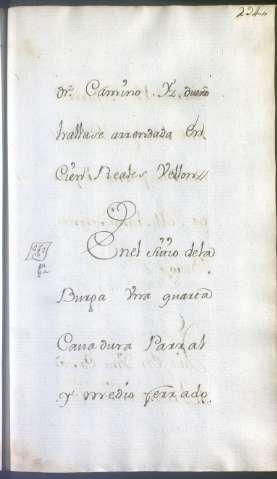 224
dr. Camino Yz. dueño
hallase arrendada En
Cien Reales Vellon
Enel Sitio dela
Burga Una quarta
Cavadura Parral
y medio ferrado